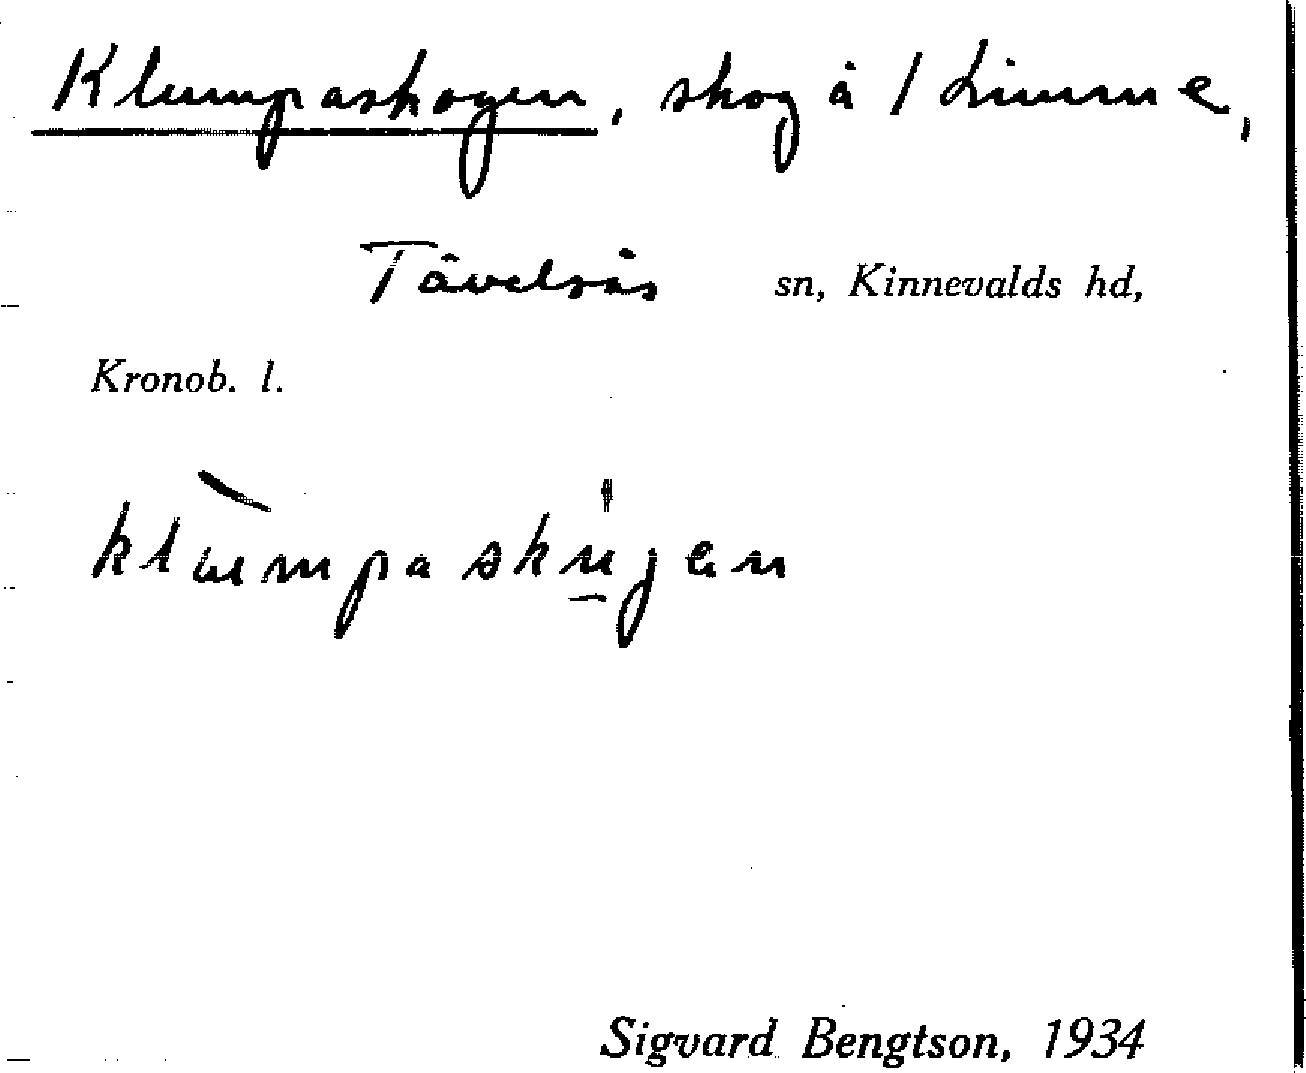 Klumpaskogen, skog å 1 Linnne,
Tävelsås sn, Kinnevalds hd,
Kronob. l.
Sigvard Bengtson, 1934